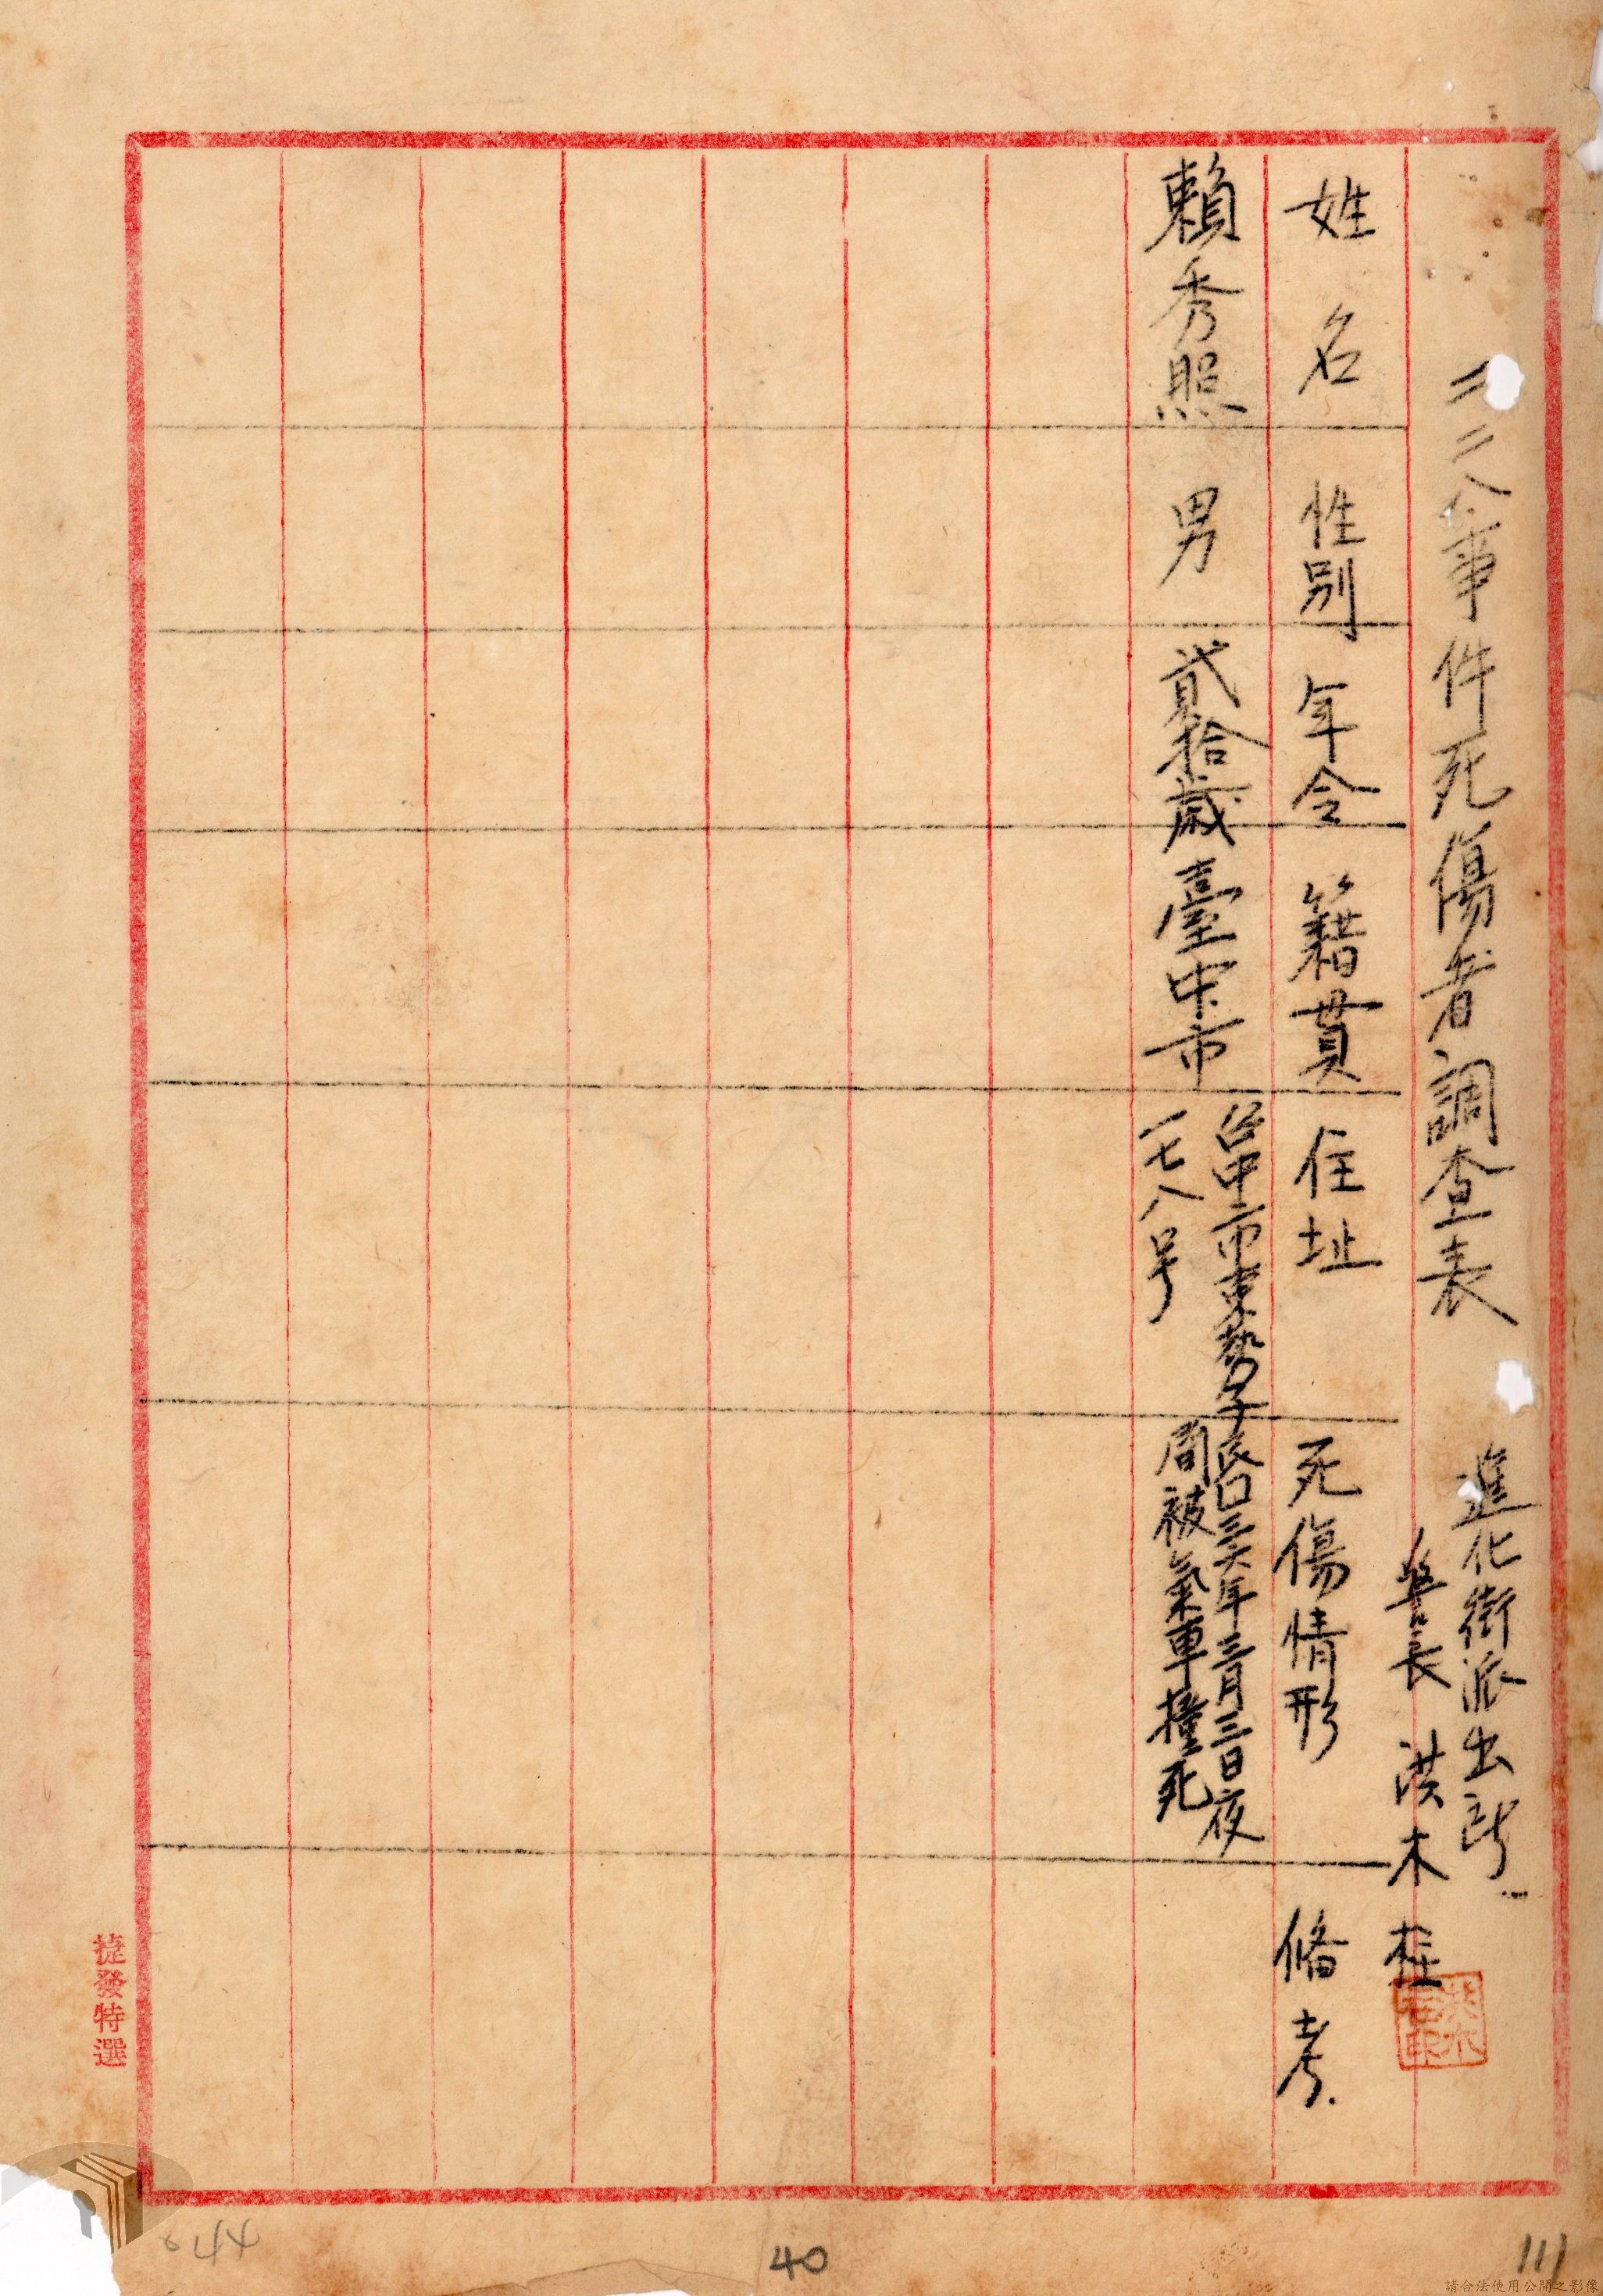 二二八事件死傷者調查表
進化街派出所
警長 洪木柱
姓名
性別
年令
籍貫
住址
死傷情形
俻考
賴秀照
男
貳拾歲
臺中市
台中市東勢子
一七八号
民囗三六年三月三日夜
間被氣車撞死
捷發特選
044
40
111
請合法使用公開之影像